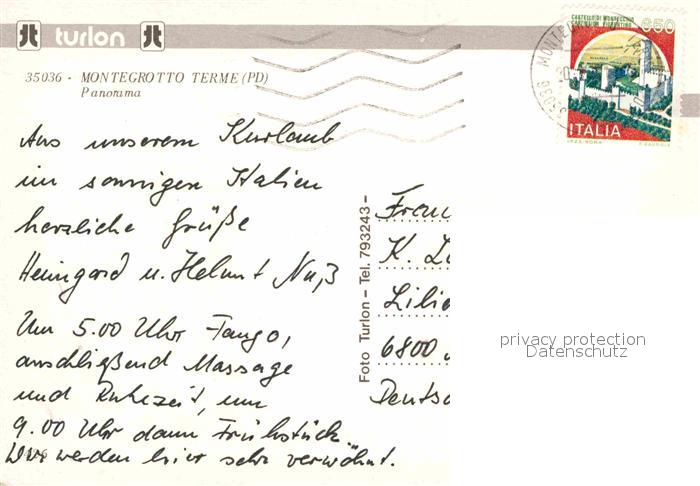 turlon
35036 - MONTEGROTTO TERME (PD)
Panorama
CASTELLO DI MONTECCHIO
CASTIGLION FIORENTINO
650
ITALIA
I.P.Z.S. ROMA
35036 MONTEG
Aus unserem Kurlaub
im sonnigen Italien
herzliche Grüße
u. Helmut
Um 5.00 Uhr Fango,
anschließend Massage
und Ruhezeit, um
9.00 Uhr dann Frühstück.
Wir werden hier sehr verwöhnt.
Foto Turlon - Tel. 793243 -
Frau
K.
Lilie
6800
Deutsc
privacy protection
Datenschutz